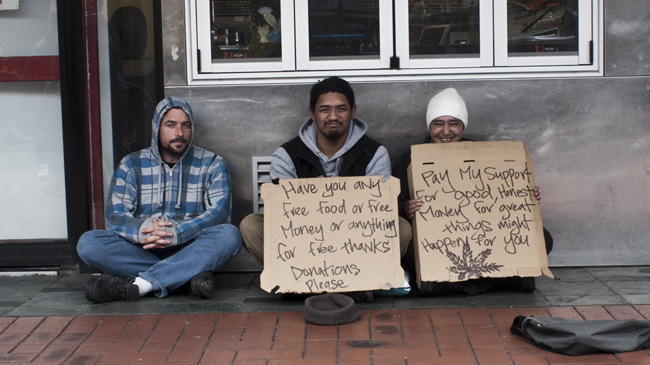 Have you any
free food or free
Money or anything
for free thanks
Donations
Please
Pay My Support
for good, Honest
Money for great
things might
Happen for you